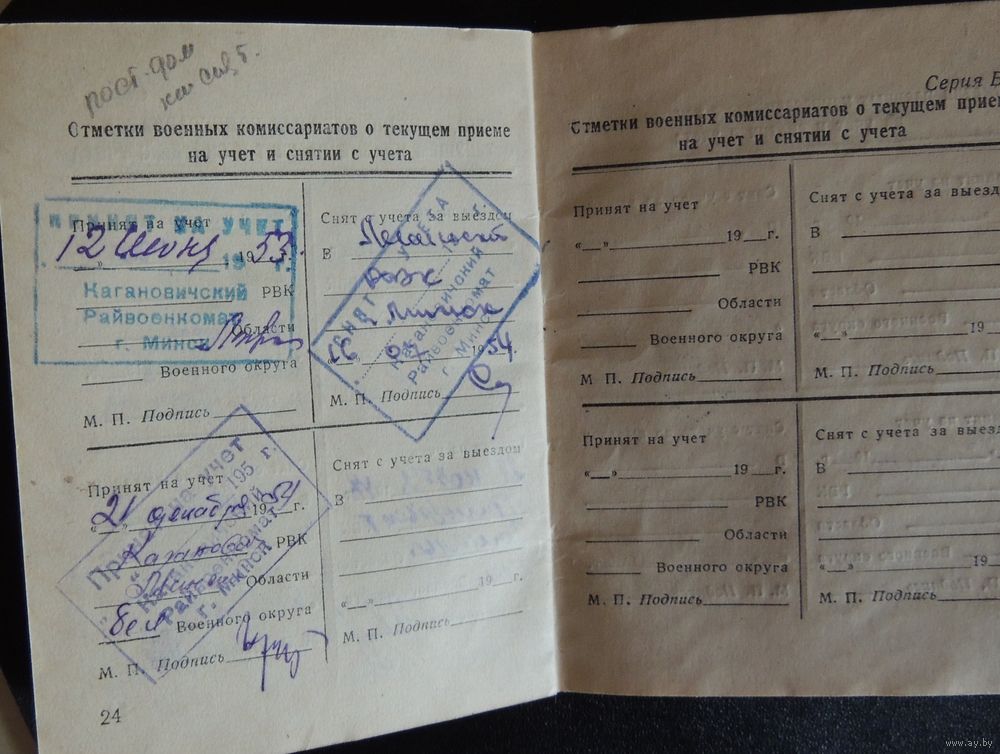 пост. дом
Отметки военных комиссариатов о текущем приеме
на учет и снятии с учета
ПРИНЯТ НА УЧЕТ
Принят на учет
12 Июня 1953 г.
Кагановичский РВК
Райвоенкомат
г. Минск Области
Военного округа
М. П. Подпись
Снят с учета за выездом
в
РВК
Минск
СНЯТ С УЧЕТА
195 г.
Кагановичский
Райвоенкомат
г. Минск
„26" 1954
М. П. Подпись
Принят на учет
Принят на учет
195 г.
„21" декабря 1954 г.
Кагановичский РВК
Райвоенкомат
г. МИНСК
Минск Области
Бел Военного округа
М. П. Подпись
Снят с учета за выездом
в
„ " 19 г.
М. П. Подпись
24
Серия Б
Отметки военных комиссариатов о текущем прие
на учет и снятии с учета
Принят на учет
„ " 19 г.
РВК
Области
Военного округа
М. П. Подпись
Снят с учета за выезд
в
„ " 19
М. П. Подпись
Принят на учет
„ " 19 г.
РВК
Области
Военного округа
М. П. Подпись
Снят с учета за выезд
в
„ " 19
М. П. Подпись
www.ay.by